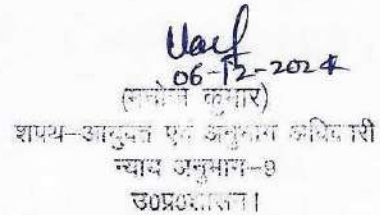 06-12-2024
(मनोज कुमार)
शपथ-आयुक्त एवं अनुभाग अधिकारी
न्याय अनुभाग-9
उ0प्र0शासन।